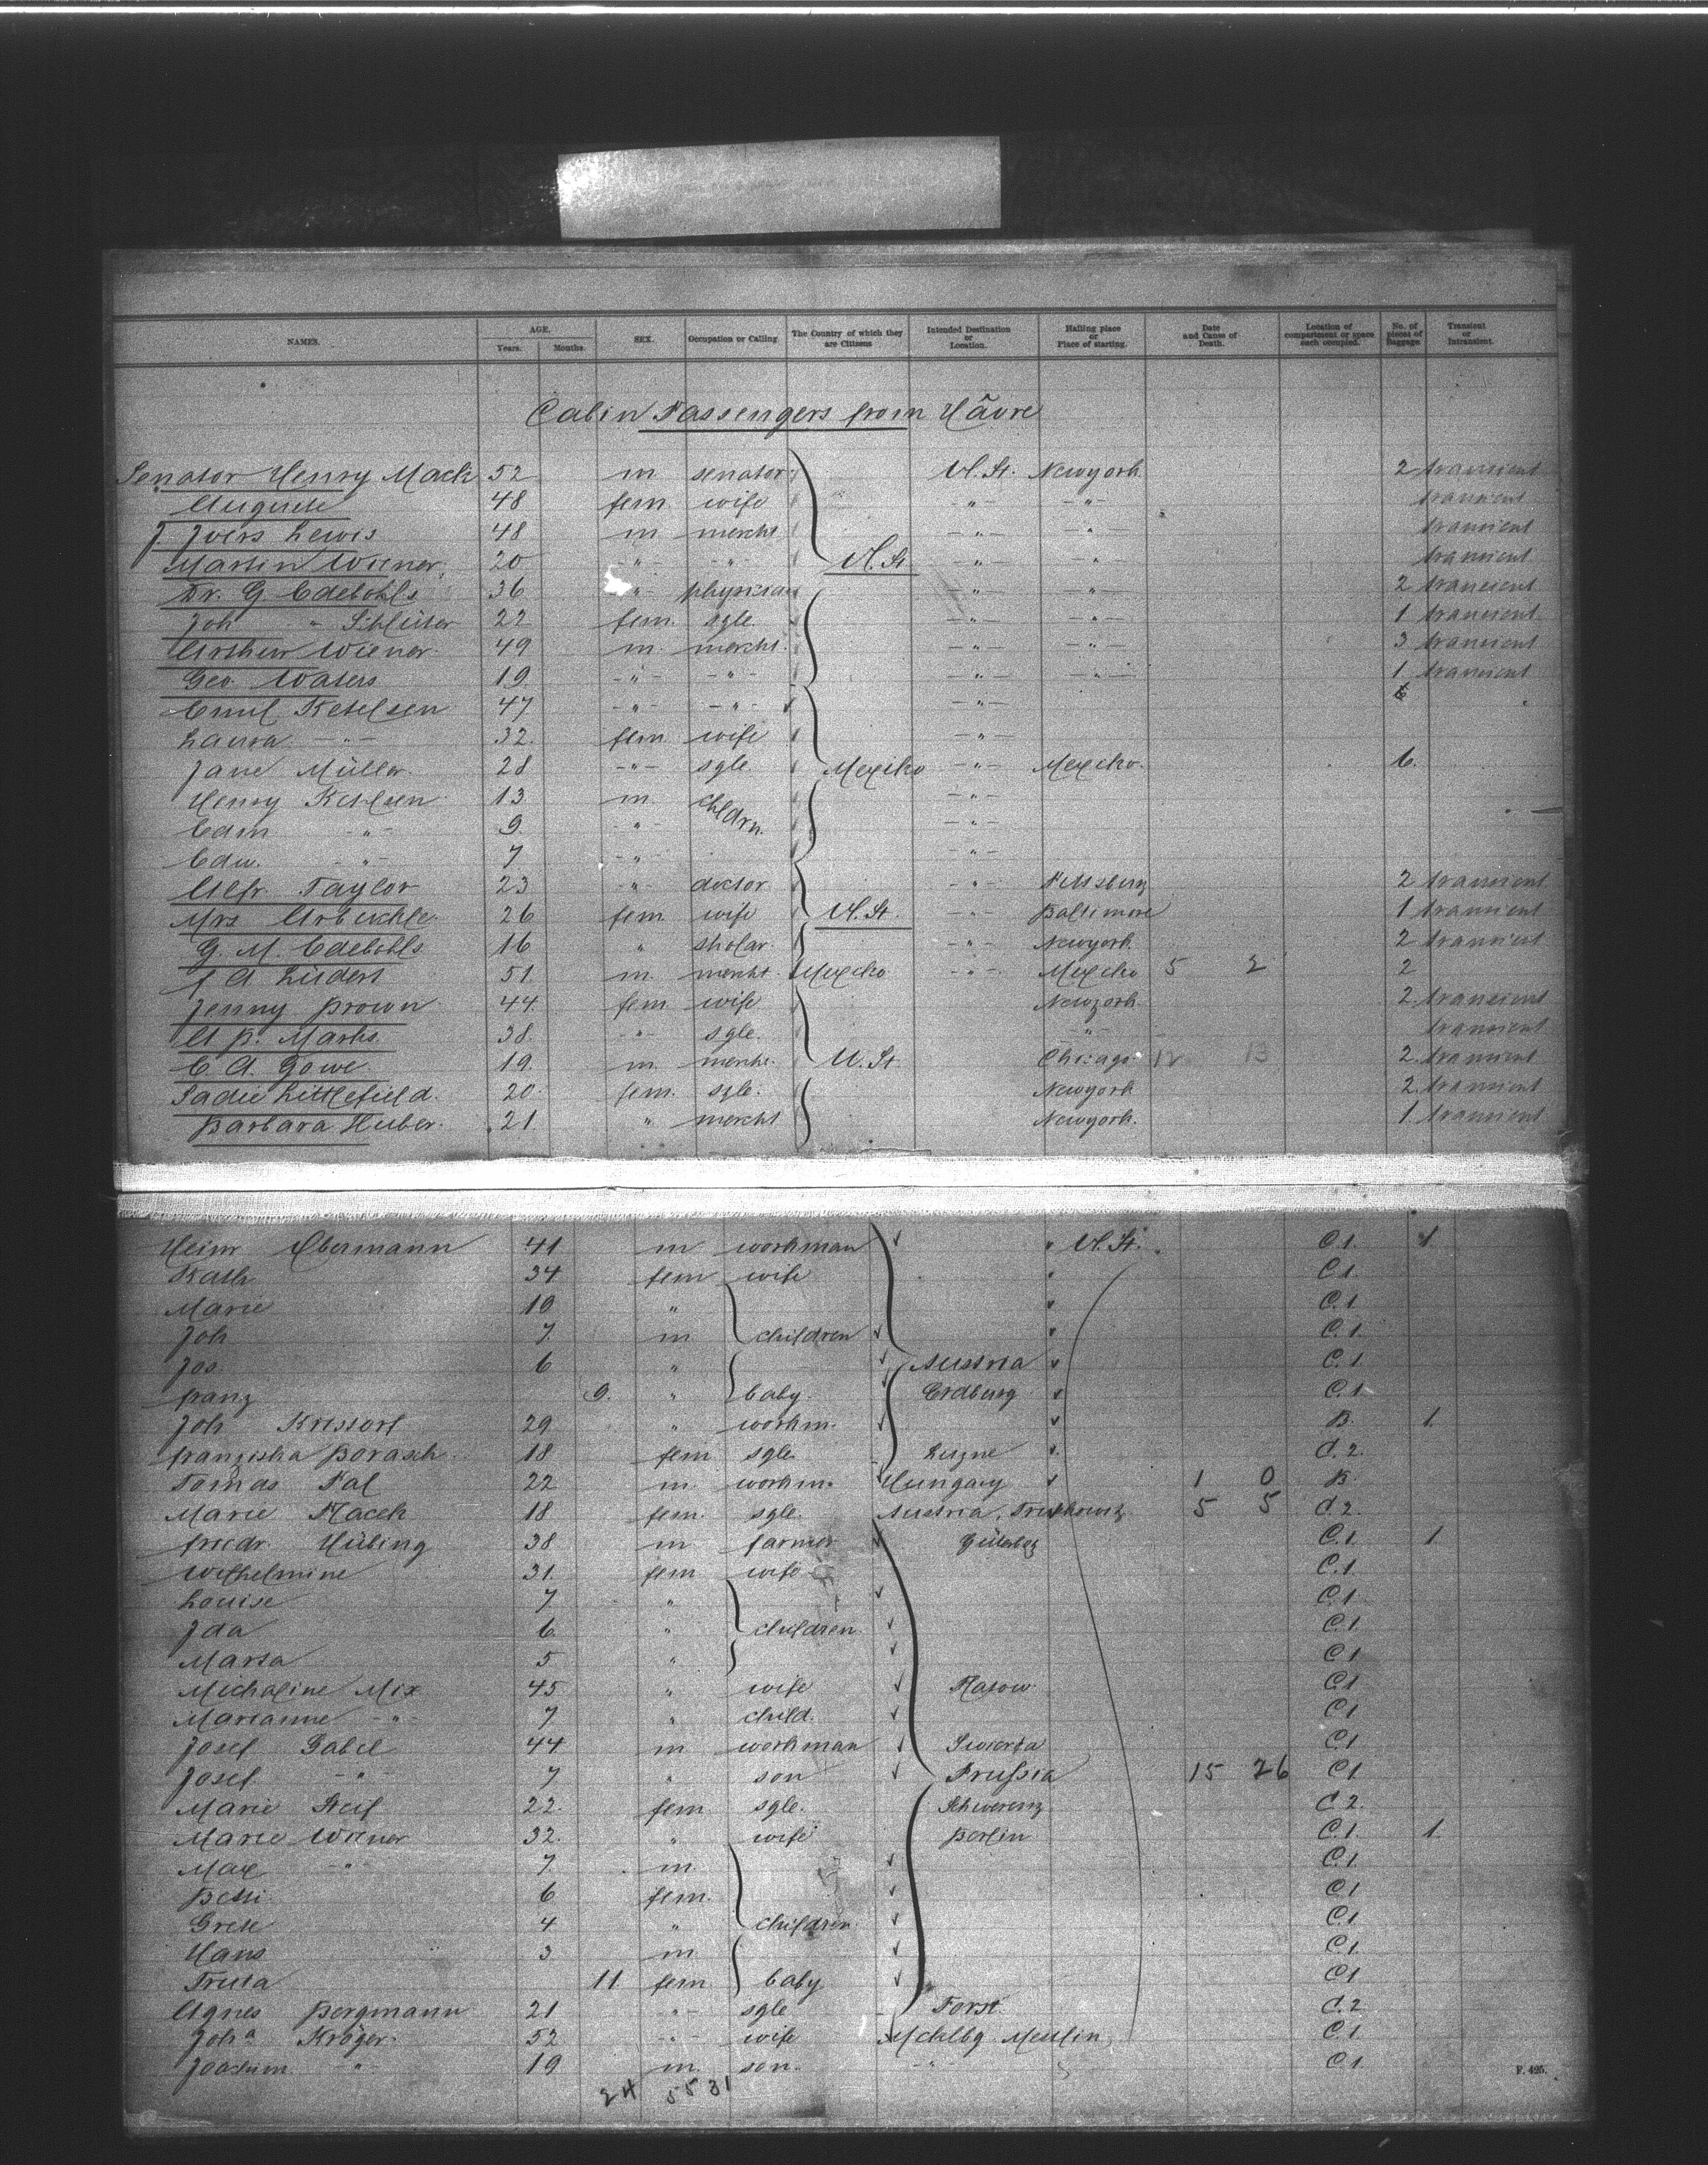 NAMES. AGE. Years. Months. SEX. Occupation or Calling The Country of which they are Citizens Intended Destination or Location. Hailing place or Place of starting. Date and Cause of Death. Location of compartment or space each occupied. No. of pieces of Baggage Transient or Intransient.
Cabin Passengers from Hâvre
Senator Henry Mack 52 m senator U. St. Newyork 2 transient
Auguste 48 fem wife -"- -"- transient
J. Joers Lewis 48 m mercht -"- -"- transient
Martin Wiener 20 -"- -"- U. St. -"- -"- transient
Dr. G Edebohls 36 -"- physician -"- -"- 2 transient
Joh " Schlüter 22 fem. sgle. -"- -"- 1 transient
Arthur Wiener 49 m. mercht. -"- -"- 3 transient
Geo. Waters 19 -"- -"- -"- -"- 1 transient
Emil Ketelsen 47 -"- -"- -"-
Laura -"- 32. fem wife -"-
Jane Müller. 28 -"- sgle. Mexcko -"- Mexcko. 6.
Henry Ketelsen 13 m. chldrn. -"-
Edm -"- 9. -"- -"-
Edw. -"- 7 -"- -"-
Alfr. Taylor 23 -"- doctor -"- Pittsburg 2 transient
Mrs Arbuckle. 26 fem wife U. St. -"- Baltimore 1 transient
G. M. Edebohls 16 " sholar. -"- Newyork 2 transient
A. Lüders 51. m. mercht. Mexcko -"- Mexcko 5 2 2
Jenny Brown 44. fem wife Newyork 2. transient
A B. Marks. 38. -"- sgle. -"- transient
C. A. Gowe. 19. m. mercht. U. St Chicago 12 13 2. transient
Sadie Littlefield. 20. fem. sgle. Newyork 2. transient
Barbara Huber. 21. " mercht Newyork. 1. transient
Heinr Obermann 41 m workman " U. St. C.1. 1.
Kath 34 fem wife C1.
Marie 10 " C.1
Joh 7. m children C.1.
Jos. 6 " Austria C.1
franz 9. " baby. Erdburg C.1
Joh Krissorf 29 " workm. B. 1.
franziska Borasch. 18 fem sgle. C.2.
Tomas Pal 22 m workm. Hungary 1 0 B.
Marie Macek 18 fem. sgle. Austria, 5 5 C.2.
friedr. Hübing 38 m farmer C.1 1
Wilhelmine 31. fem wife C.1
Louise 7. " C.1
Ida 6. " children. C.1
Marta 5 " C1
Michaline Mix 45 " wife C1
Marianne -"- 7 " child. C1
Josef Gabel 44 m workman C.1
Josef -"- 7 " son Prussia 15 26 C1
Marie 22. fem sgle. Schwerenz C.2.
Marie Wiener 32. " wife Berlin C.1. 1.
Max -"- 7. m. C.1
Betti 6 fem. C1
Grete 4 " children C.1
Hans 3 m C.1
Truta 11 fem baby C1
Agnes Bergmann 21 -"- sgle Forst. C.2
Joha Kröger. 52 -"- wife Mcklbg. C.1.
Joachim -"- 19 m. son. -"- C1
24 55 31
F. 495.